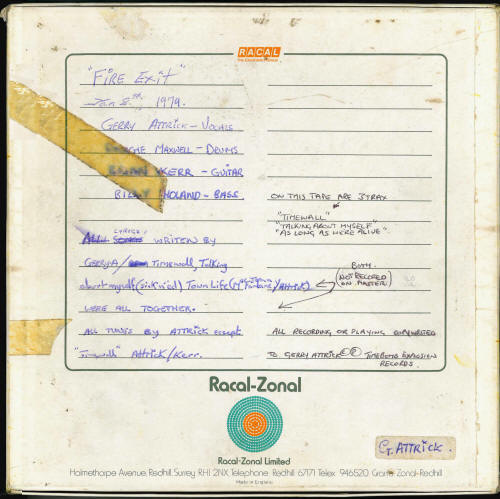 RACAL
"FIRE EXIT"
Jan 8th, 1979.
GERRY ATTRICK - VOCALS
MAXWELL - DRUMS
BRIAN KERR - GUITAR
BILLY NOLAND - BASS.
ON THIS TAPE ARE 3 TRAX
"TIMEWALL"
"TALKING ABOUT MYSELF"
"AS LONG AS WE'RE ALIVE".
LYRICS
ALL SONGS WRITEN BY
GERRY A/ TIMEWALL, Talking
about myself (sick n' old) Town Life (/Attrick)
BOTH.
(NOT RECORED
ON MASTER)
WERE ALL TOGETHER.
ALL TUNES BY ATTRICK except
"Timewall" Attrick/Kerr.
ALL RECORDING OR PLAYING COPYWRITED
TO GERRY ATTRICK TIMEBOMB EXPLOSION
RECORDS.
Racal-Zonal
Racal-Zonal Limited
Holmethorpe Avenue, Redhill, Surrey, RH1 2NX Telephone: Redhill 67171 Telex: 946520 Grams: Zonal-Redhill
Made in England
G. ATTRICK.